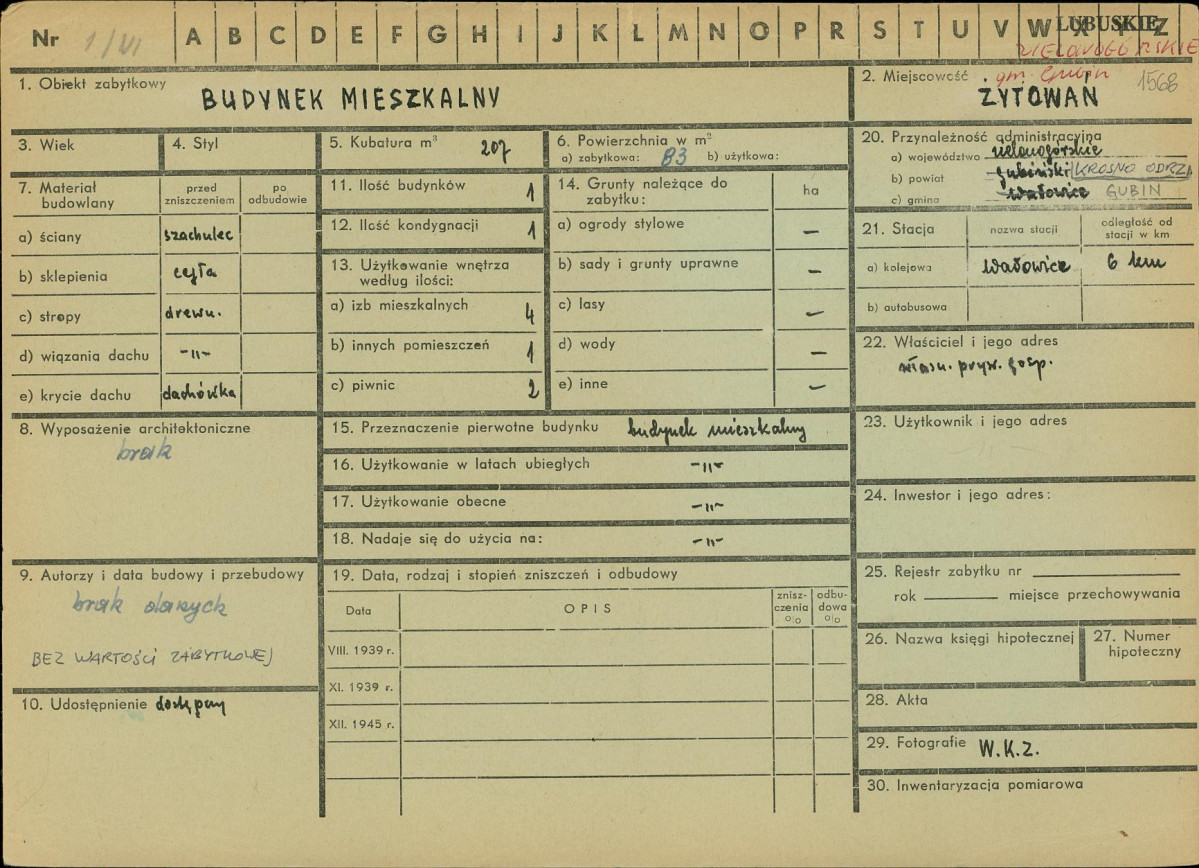 Nr 1/VI A B C D E F G H I J K L M N O P R S T U V W X Y Z
LUBUSKIE
ZIELONOGÓRSKIE
gm. Gubin
1568
1. Obiekt zabytkowy
BUDYNEK MIESZKALNY
2. Miejscowość
ŻYTOWAŃ
3. Wiek
4. Styl
5. Kubatura m³ 207
6. Powierzchnia w m²
a) zabytkowa: 83 b) użytkowa:
20. Przynależność administracyjna
a) województwo zielonogórskie
b) powiat gubiński KROSNO ODRZ.
c) gmina Wałowice GUBIN
7. Materiał budowlany
przed zniszczeniem
po odbudowie
a) ściany szachulec
b) sklepienia cegła
c) stropy drewn.
d) wiązania dachu -"-
e) krycie dachu dachówka
11. Ilość budynków 1
12. Ilość kondygnacji 1
13. Użytkowanie wnętrza
według ilości:
a) izb mieszkalnych 4
b) innych pomieszczeń 1
c) piwnic 2
14. Grunty należące do
zabytku:
ha
a) ogrody stylowe –
b) sady i grunty uprawne –
c) lasy –
d) wody –
e) inne –
21. Stacja
nazwa stacji
odległość od
stacji w km
a) kolejowa Wałowice 6 km
b) autobusowa
22. Właściciel i jego adres
własn. pryw. gosp.
8. Wyposażenie architektoniczne
brak
15. Przeznaczenie pierwotne budynku budynek mieszkalny
16. Użytkowanie w latach ubiegłych -"-
17. Użytkowanie obecne -"-
18. Nadaje się do użycia na: -"-
23. Użytkownik i jego adres
24. Inwestor i jego adres:
9. Autorzy i data budowy i przebudowy
brak danych
BEZ WARTOŚCI ZABYTKOWEJ
10. Udostępnienie dostępny
19. Data, rodzaj i stopień zniszczeń i odbudowy
Data
OPIS
znisz-
czenia
%
odbu-
dowa
%
VIII. 1939 r.
XI. 1939 r.
XII. 1945 r.
25. Rejestr zabytku nr
rok miejsce przechowywania
26. Nazwa księgi hipotecznej
27. Numer
hipoteczny
28. Akta
29. Fotografie W.K.Z.
30. Inwentaryzacja pomiarowa